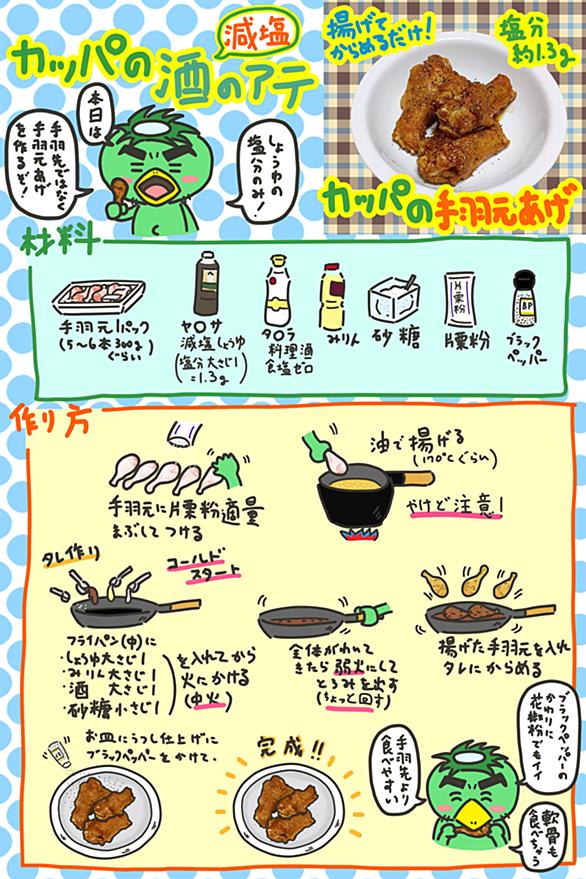 カッパの
減塩
酒のアテ
本日は
手羽先ではなく
手羽元あげ
を作るぞ!
しょうゆの
塩分のみ!
揚げて
からめるだけ!
塩分
約1.3g
カッパの手羽元あげ
材料
手羽元1パック
(5〜6本300g)
ぐらい
ヤ○サ
減塩しょうゆ
(塩分大さじ1
=1.3g)
タ○ラ
料理酒
食塩ゼロ
みりん
砂糖
片栗粉
片栗粉
BP
ブラック
ペッパー
作り方
手羽元に片栗粉適量
まぶしてつける
油で揚げる
(170℃ぐらい)
やけど注意!
タレ作り
コールド
スタート
フライパン(中)に
・しょうゆ大さじ1
・みりん大さじ1
・酒 大さじ1
・砂糖小さじ1
を入れてから
火にかける
(中火)
全体がわいて
きたら弱火にして
とろみを出す
(ちょっと回す)
揚げた手羽元を入れ
タレにからめる
お皿にうつし仕上げに
ブラックペッパーをかけて、
完成!!
ブラックペッパーの
かわりに
花椒粉でもイイ
手羽先より
食べやすい
軟骨も
食べちゃう